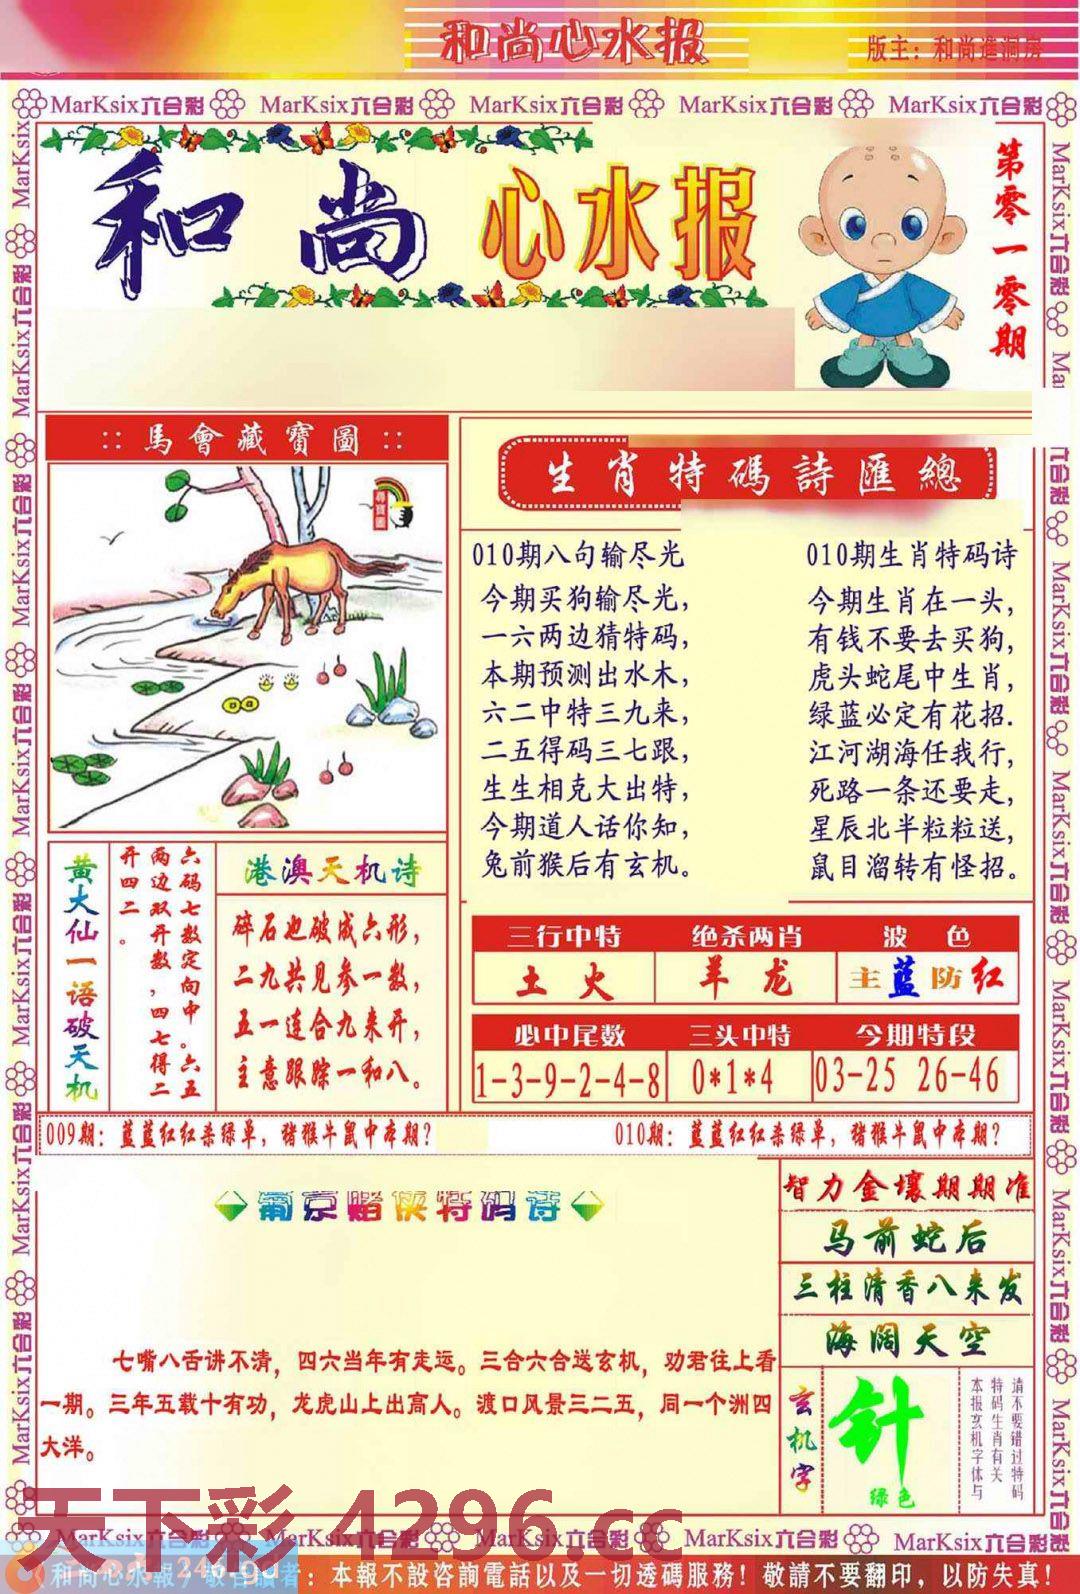 和尚心水报
版主：和尚進洞房
MarKsix六合彩 MarKsix六合彩 MarKsix六合彩 MarKsix六合彩 MarKsix六合彩
和尚心水报
第零一零期
::馬會藏寶圖::
生肖特碼詩匯總
010期八句输尽光
今期买狗输尽光，
一六两边猜特码，
本期预测出水木，
六二中特三九来，
二五得码三七跟，
生生相克大出特，
今期道人话你知，
兔前猴后有玄机。
010期生肖特码诗
今期生肖在一头，
有钱不要去买狗，
虎头蛇尾中生肖，
绿蓝必定有花招.
江河湖海任我行，
死路一条还要走，
星辰北半粒粒送，
鼠目溜转有怪招。
黄大仙一语破天机
六码七数定向中。六五
两边双开数，四七得二
开四二。
港澳天机诗
碎石也破成六形，
二九共见参一数，
五一连合九来开，
主意跟踪一和八。
三行中特 绝杀两肖 波色
土火 羊龙 主蓝防红
必中尾数 三头中特 今期特段
1-3-9-2-4-8 0*1*4 03-25 26-46
009期：蓝蓝红红杀绿单，猪猴牛鼠中本期？
010期：蓝蓝红红杀绿单，猪猴牛鼠中本期？
葡京赌侠特码诗
七嘴八舌讲不清，四六当年有走运。三合六合送玄机，劝君往上看
一期。三年五载十有功，龙虎山上出高人。渡口风景三二五，同一个洲四
大洋。
智力金壤期期准
马前蛇后
三柱清香八来发
海阔天空
玄机字
针
绿色
请不要错过特码
特码生肖有关
本报玄机字体与
天下彩 4296.cc
MarKsix六合彩 MarKsix六合彩 MarKsix六合彩 MarKsix六合彩 MarKsix六合彩
和尚心水報，敬告讀者：本報不設咨詢電話以及一切透碼服務！敬請不要翻印，以防失真！